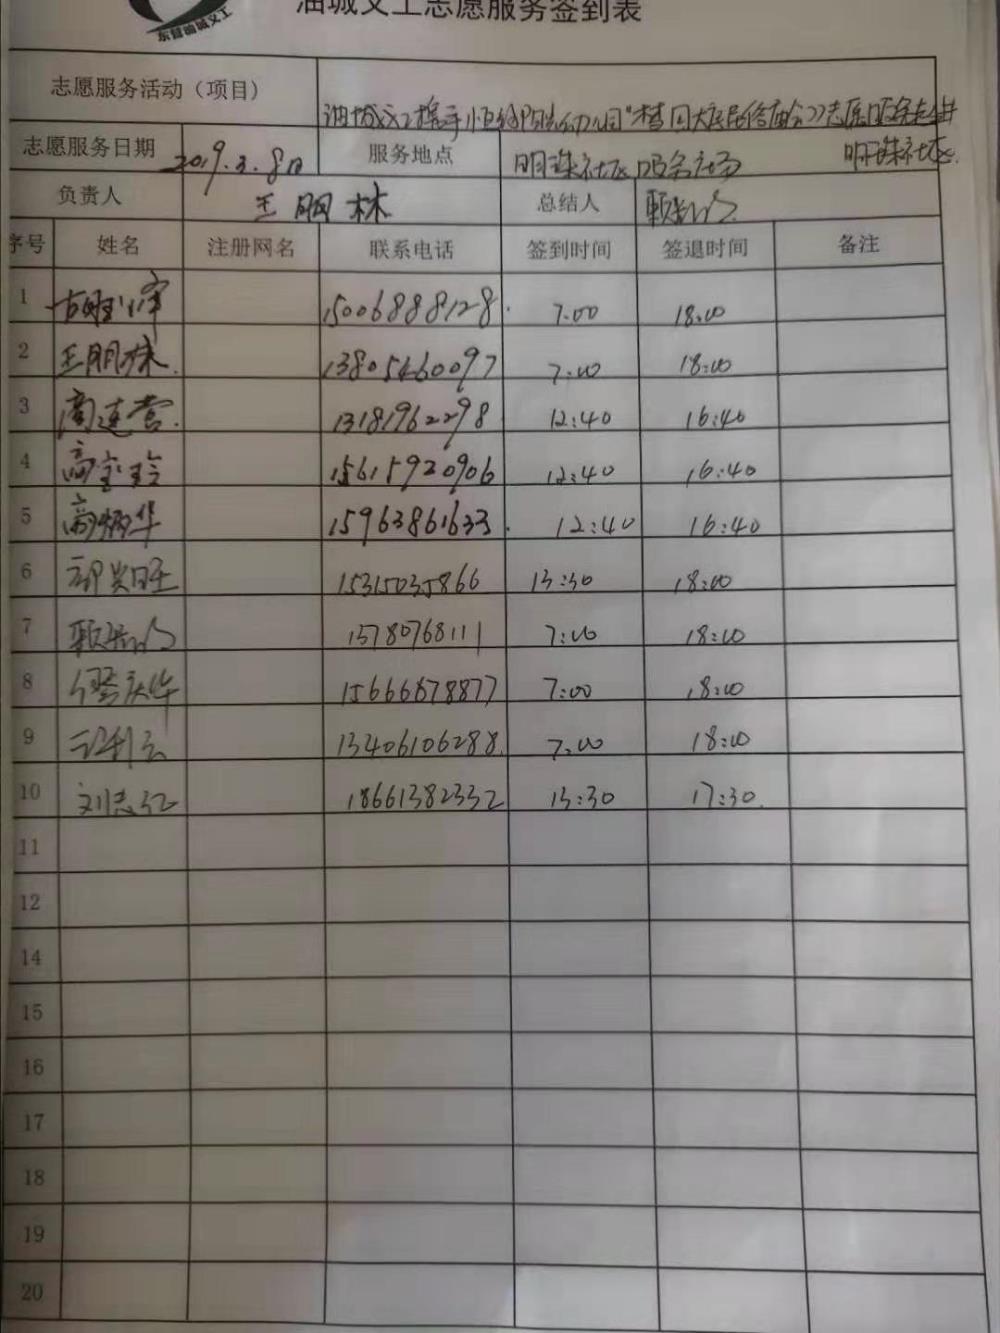 东营油城义工
油城义工志愿服务签到表
志愿服务活动（项目）
油城义工携手 幼儿园"梦回大 民俗庙会"志愿服务走进
明珠社区
志愿服务日期 2019.3.8日 服务地点 明珠社区
负责人 王朋林 总结人
序号 姓名 注册网名 联系电话 签到时间 签退时间 备注
1 15006888128 7:00 18:00
2 王朋林 13805460097 7:00 18:00
3 高连营 13181962298 12:40 16:40
4 高宝玲 15615920906 12:40 16:40
5 高炳华 15963861633 12:40 16:40
6 15315035866 13:30 18:00
7 15780768111 7:00 18:00
8 15666678877 7:00 18:00
9 13406106288 7:00 18:00
10 刘志红 18661382332 13:30 17:30
11
12
14
15
16
17
18
19
20